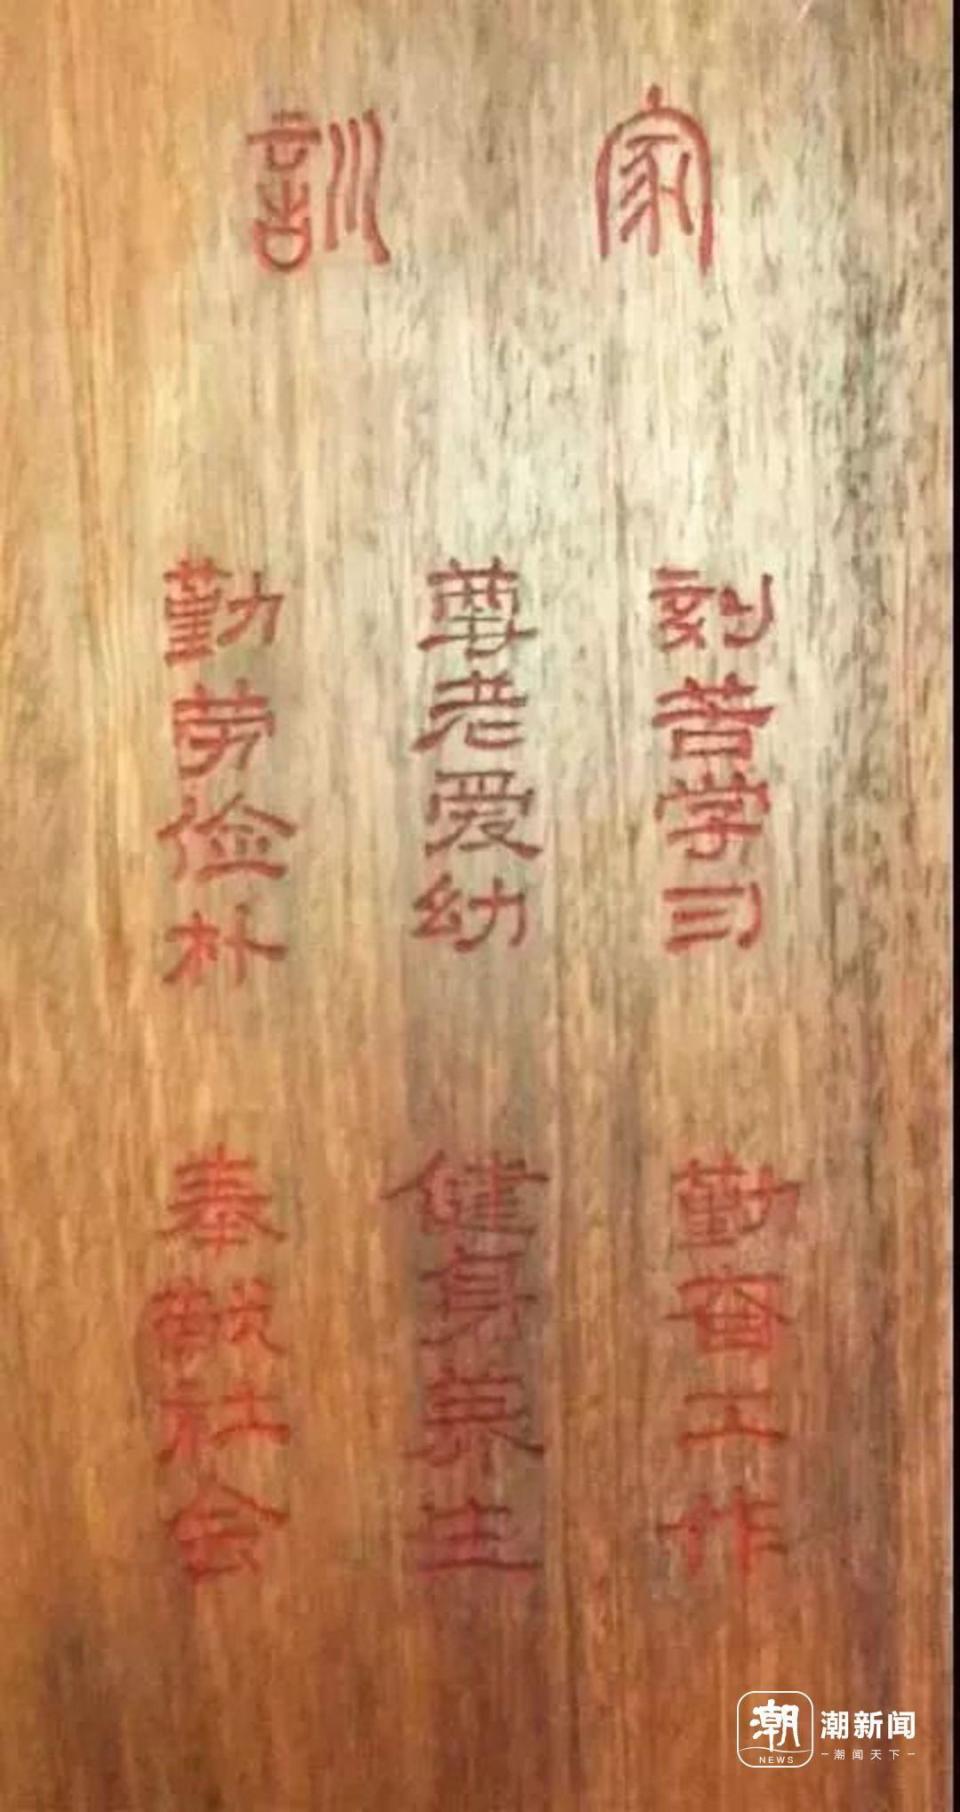 家訓
刻苦学习
勤奋工作
尊老爱幼
健身养生
勤劳俭朴
奉献社会
潮 NEWS
潮新闻
潮闻天下